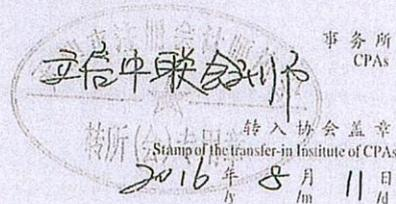 事务所
CPAs
立信中联会计师
转所(会)专用章
转入协会盖章
Stamp of the transfer-in Institute of CPAs
2016年8月11日
/y /m /d